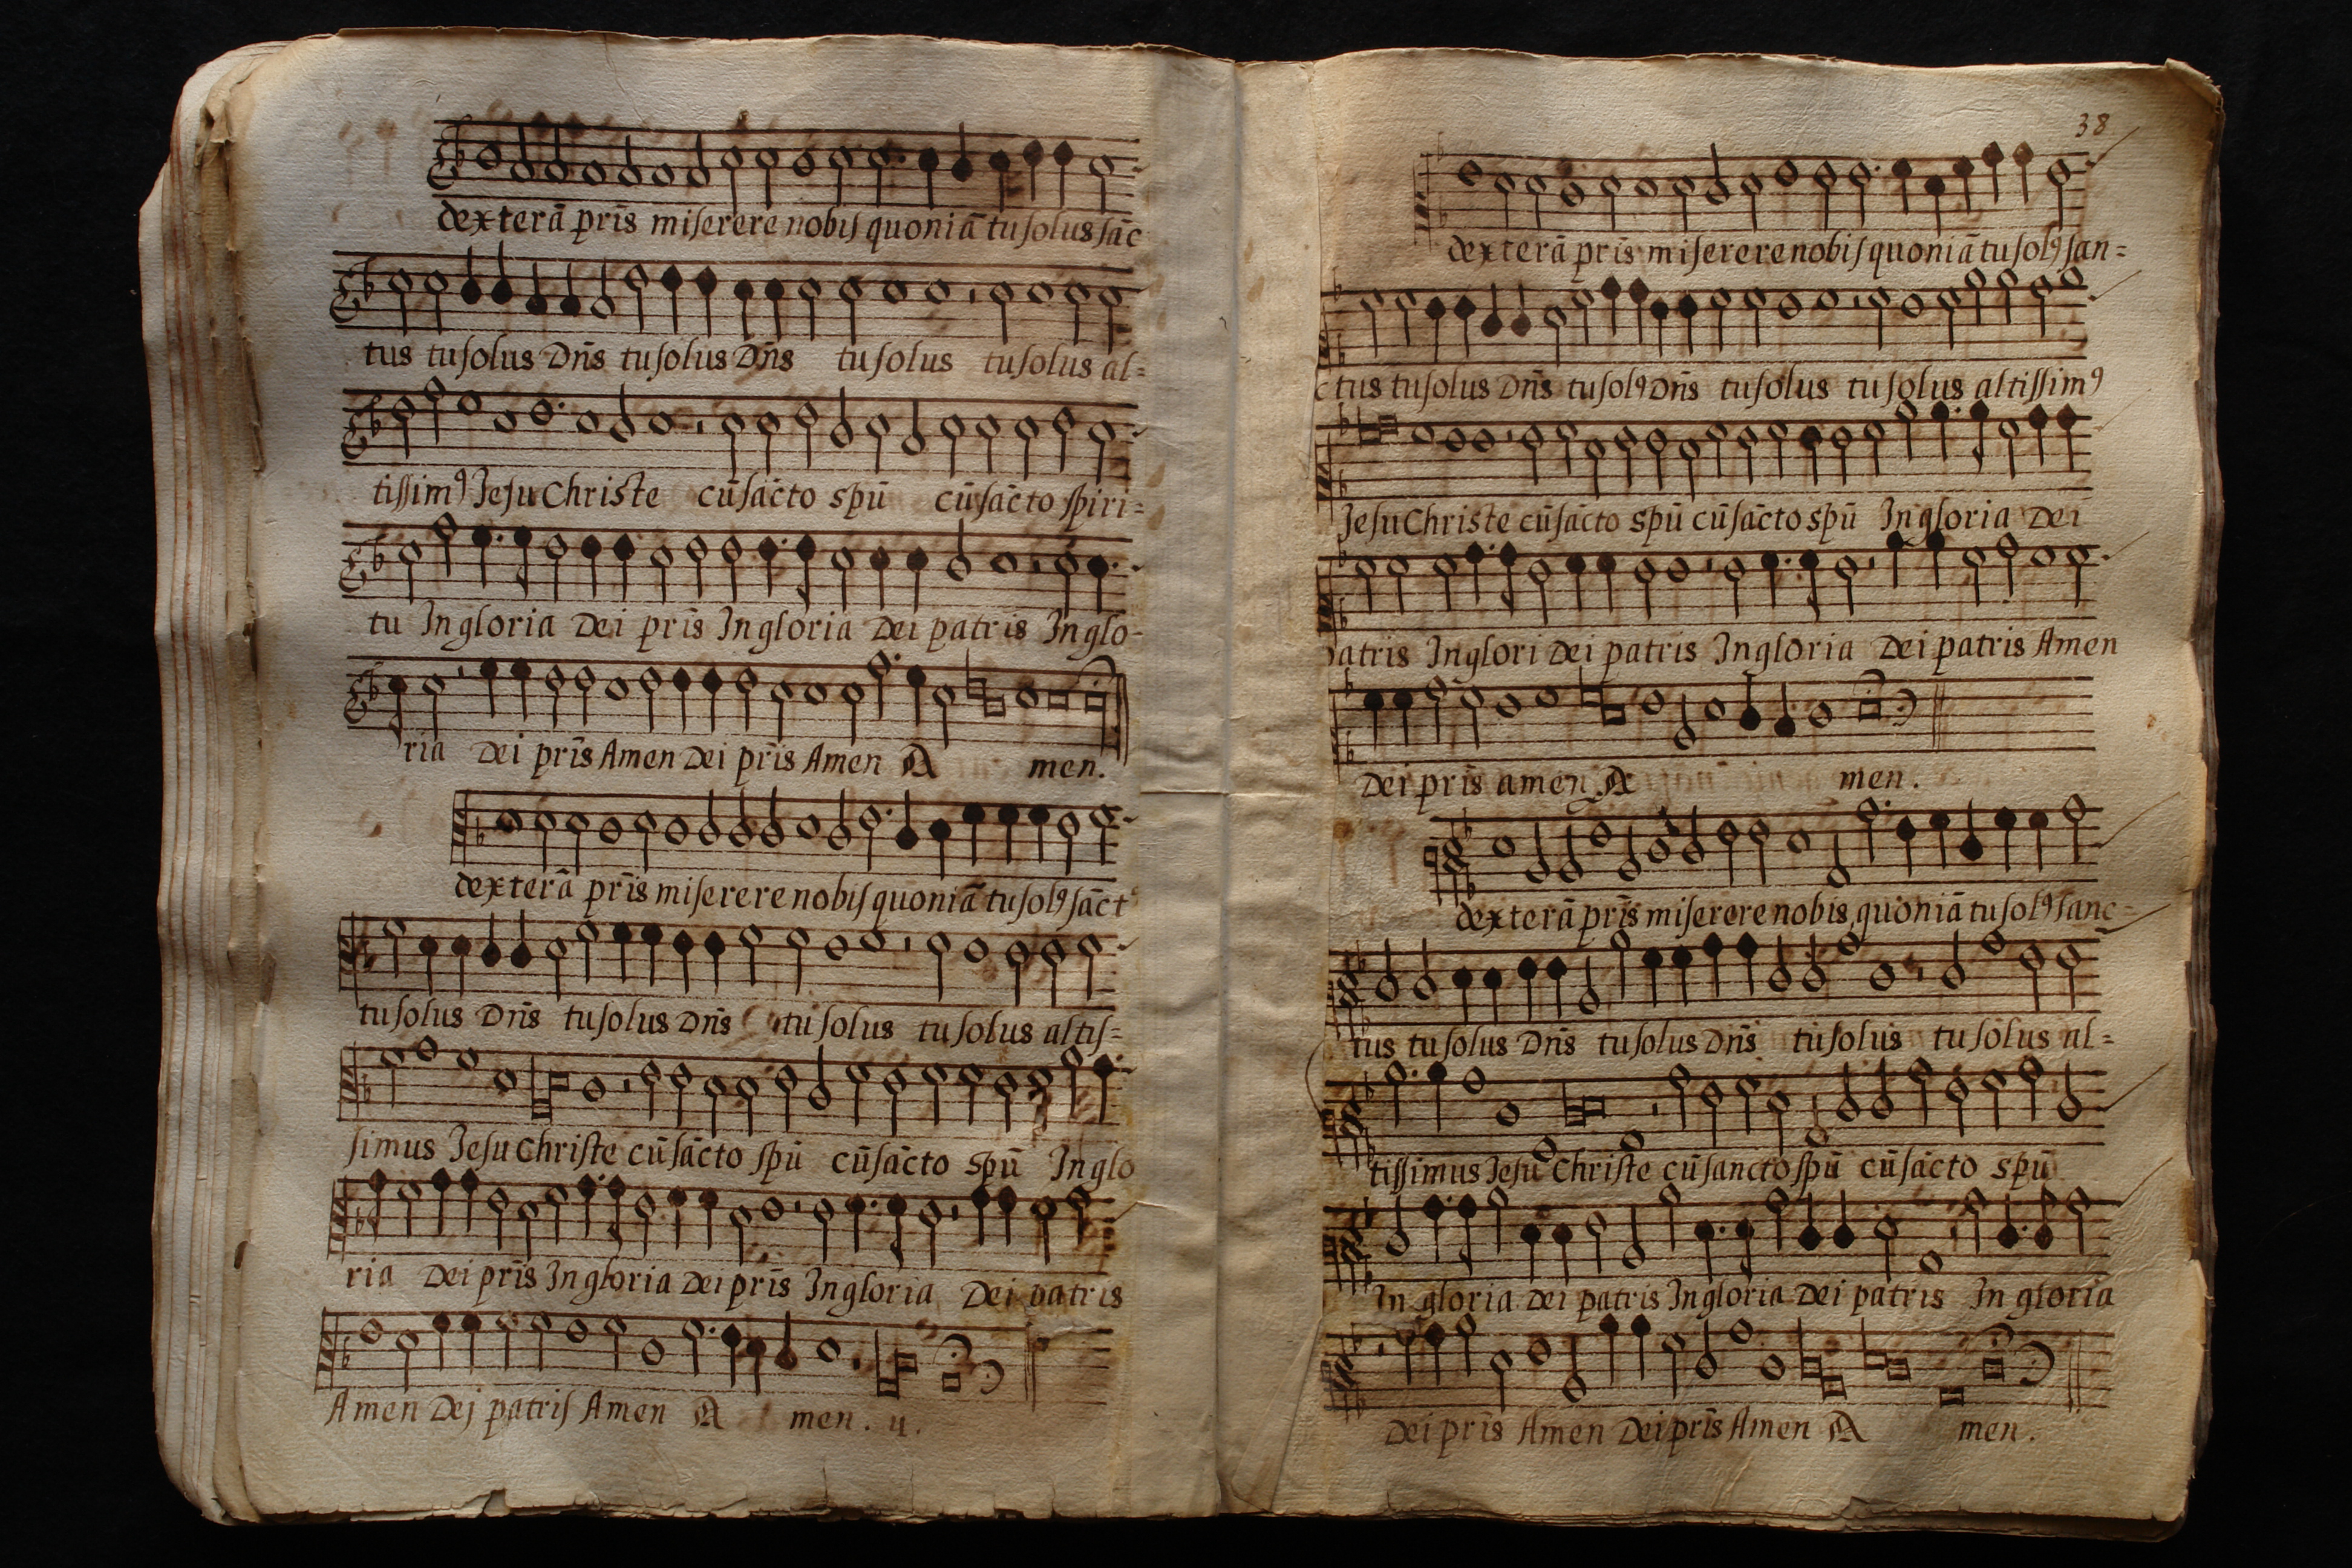 dexterā pr̄is miſerere nobiſ quoniā tu ſolus ſāc
tus tu ſolus Dn̄s tu ſolus Dn̄s tu ſolus tu ſolus al=
tiſſimꝰ Jeſu Christe cū ſācto spū cū ſācto ſpiri=
tu In gloria Dei pr̄is In gloria Dei patris In glo-
ria Dei pr̄is Amen Dei pr̄is Amen A men.
dexterā pr̄is miſerere nobiſ quoniā tu ſolꝰ ſāct
tu ſolus Dn̄s tu ſolus Dn̄s tu ſolus tu ſolus altiſ=
ſimus Jeſu Chriſte cū ſācto ſpū cū ſācto spū In glo
ria Dei pr̄is In gloria Dei pr̄is In gloria Dei patris
Amen Dej patriſ Amen A men. u.
38
dexterā pr̄is miſerere nobiſ quoniā tu ſolꝰ ſan=
ctus tu ſolus Dn̄s tu ſolꝰ Dn̄s tu ſolus tu ſolus altiſſimꝰ
Jeſu Christe cū ſācto spū cū ſācto spū In gloria Dei
patris In glori Dei patris In gloria Dei patris Amen
Dei pr̄is amen A men.
dexterā pr̄is miſerere nobis quoniā tu ſolꝰ ſanc=
tus tu ſolus Dn̄s tu ſolus Dn̄s tu ſolus tu ſolus al=
tiſſimus Jeſu Chriſte cū ſancto ſpū cū ſācto spū
In gloria Dei patris In gloria Dei patris In gloria
Dei pr̄is Amen Dei pr̄is Amen A men.